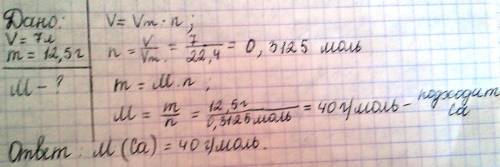 Дано:
V = 7л
m = 12,5г
M - ?
V = Vm · n ;
n = V/Vm = 7/22,4 = 0,3125 моль
m = M · n ;
M = m/n = 12,5г/0,3125 моль = 40 г/моль – подходит Ca
Ответ: M (Ca) = 40 г/моль.